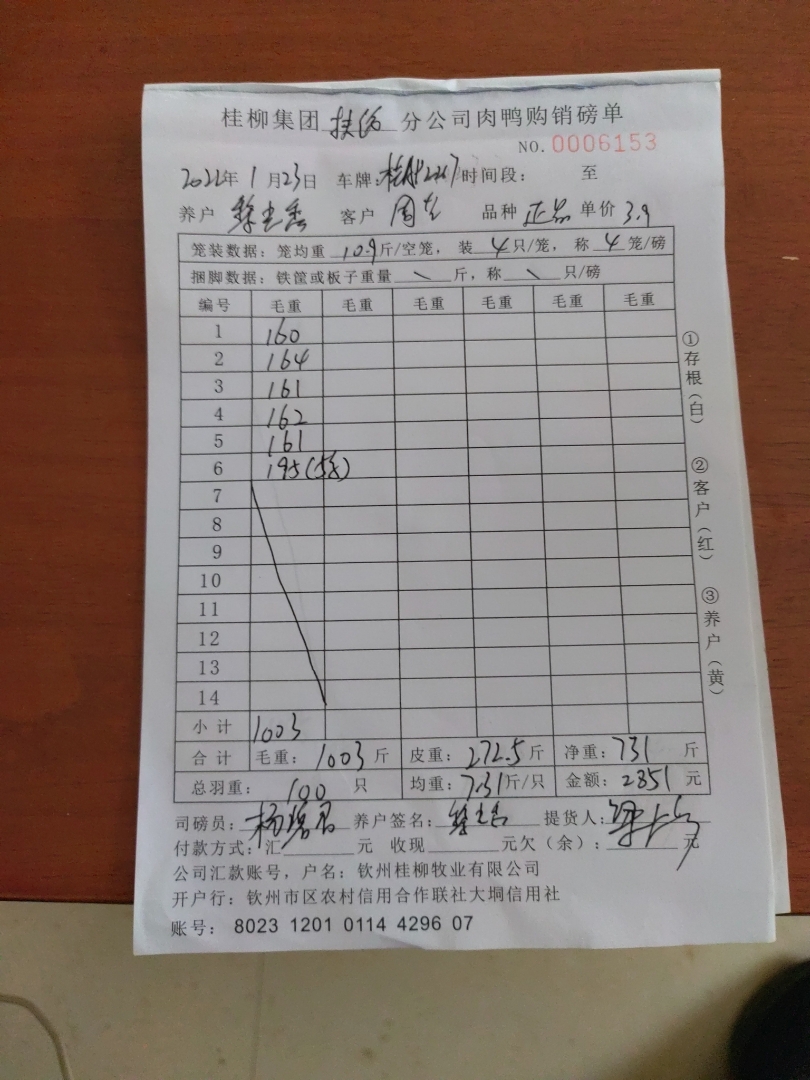 桂柳集团 扶绥 分公司肉鸭购销磅单
NO. 0006153
2022年 1月23日 车牌: 时间段: 至
养户 客户 周 品种 正品 单价 3.9
笼装数据: 笼均重 10.9斤/空笼, 装 4只/笼, 称 4笼/磅
捆脚数据: 铁筐或板子重量 \ 斤, 称 \ 只/磅
编号 毛重 毛重 毛重 毛重 毛重 毛重
1 160
2 164
3 161
4 162
5 161
6 195(5笼)
7
8
9
10
11
12
13
14
小计 1003
合计 毛重: 1003斤 皮重: 272.5斤 净重: 731 斤
总羽重: 100 只 均重: 7.31斤/只 金额: 2851 元
司磅员: 杨 养户签名: 提货人:
付款方式: 汇 元 收现 元欠(余): 元
公司汇款账号, 户名: 钦州桂柳牧业有限公司
开户行: 钦州市区农村信用合作联社大垌信用社
账号: 8023 1201 0114 4296 07
①存根(白)
②客户(红)
③养户(黄)